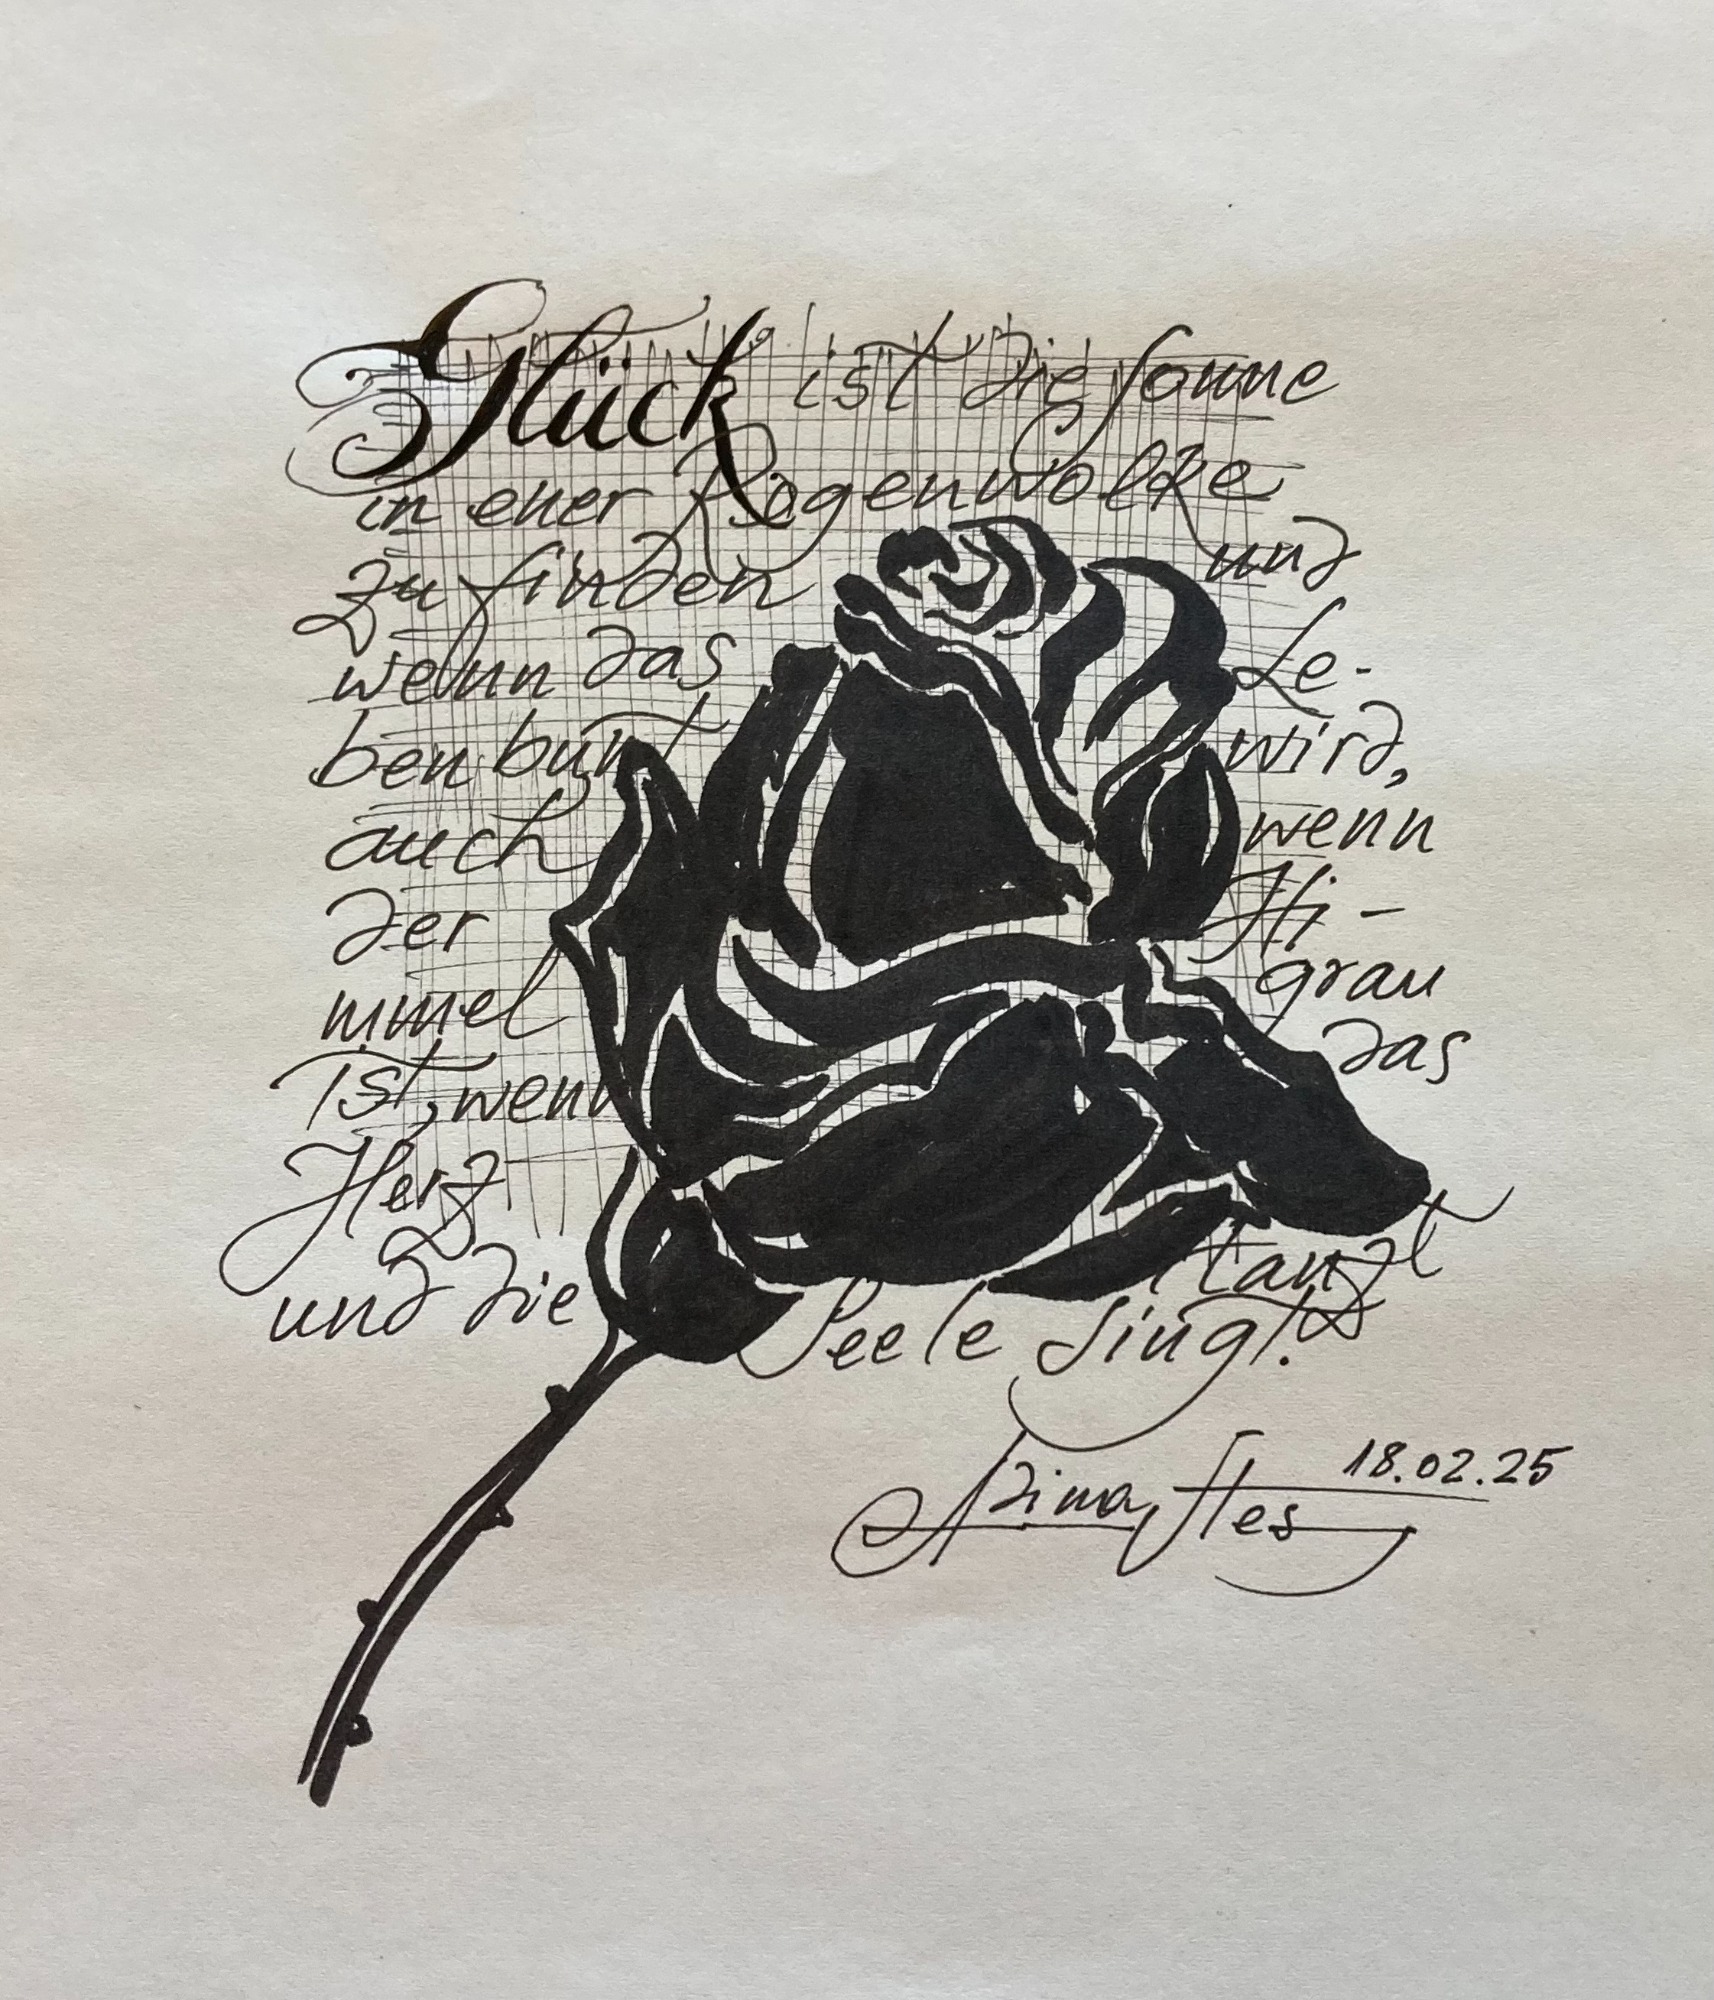 Glück ist die Sonne
in einer Regenwolke
zu finden und
wenn das Le-
ben bunt wird,
auch wenn
der Hi-
mmel grau
ist, wenn das
Herz tanzt
und die Seele singt.
18.02.25